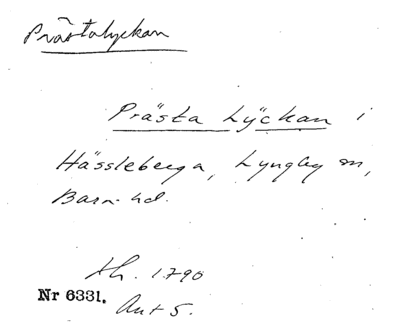 Prästalyckan
Prästa Lÿckan i
Hässleberga, Lyngby sn,
Bara hd.
Ah. 1790
Nr 6331.
Akt 5.